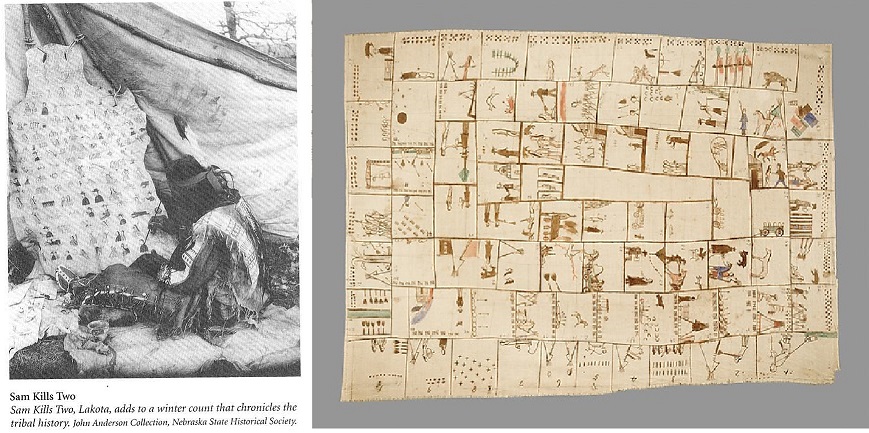 Sam Kills Two
Sam Kills Two, Lakota, adds to a winter count that chronicles the
tribal history. John Anderson Collection, Nebraska State Historical Society.